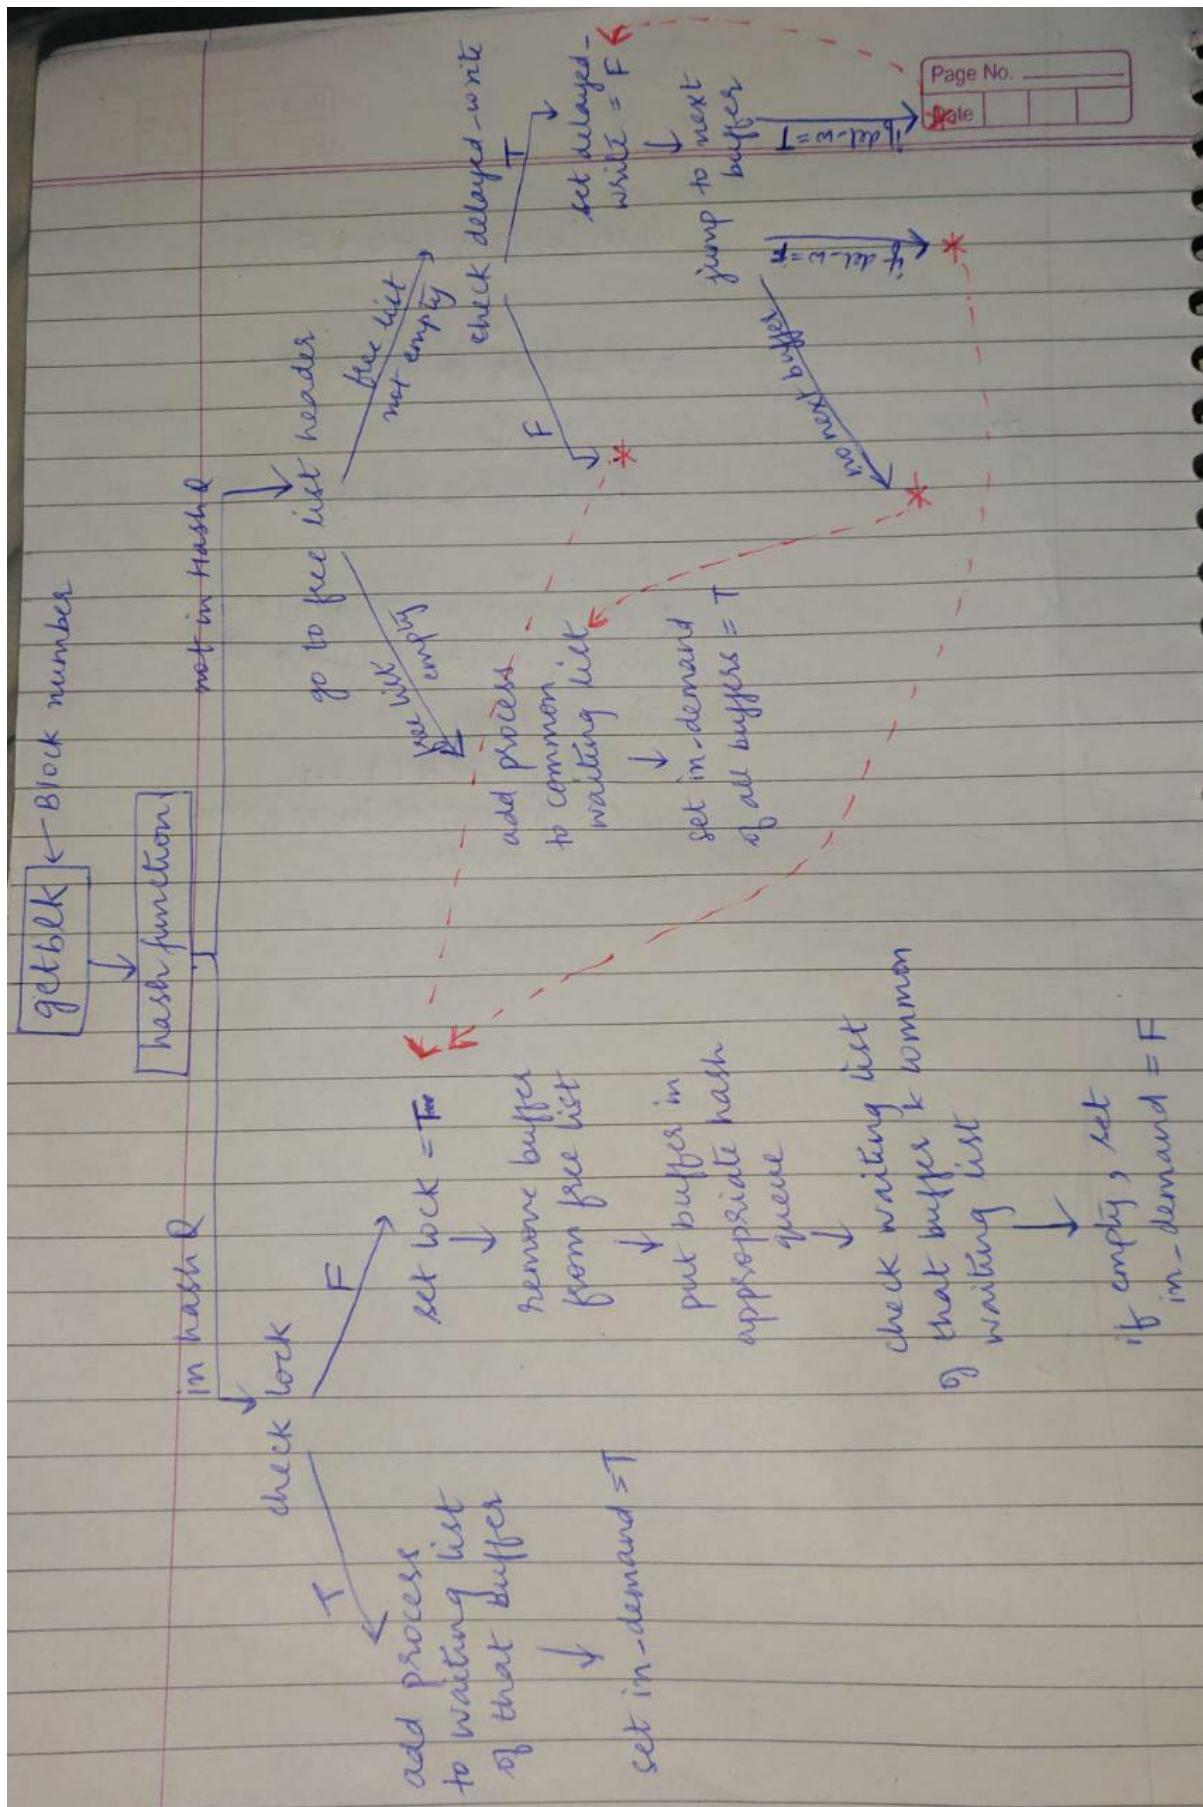 getblk ← Block number
hash function
in hash Q
not in Hash Q
check lock
T
F
add process
to waiting list
of that buffer
set in-demand = T
set lock = T
remove buffer
from free list
put buffer in
appropriate hash
queue
check waiting list
of that buffer & common
waiting list
if empty, set
in-demand = F
go to free list header
free list
empty
free list
not empty
add process
to common
waiting list
set in-demand
of all buffers = T
check delayed-write
F
T
set delayed-
write = F
jump to next
buffer
no next buffer
if del-w = F
if del-w = T
Page No.
Date